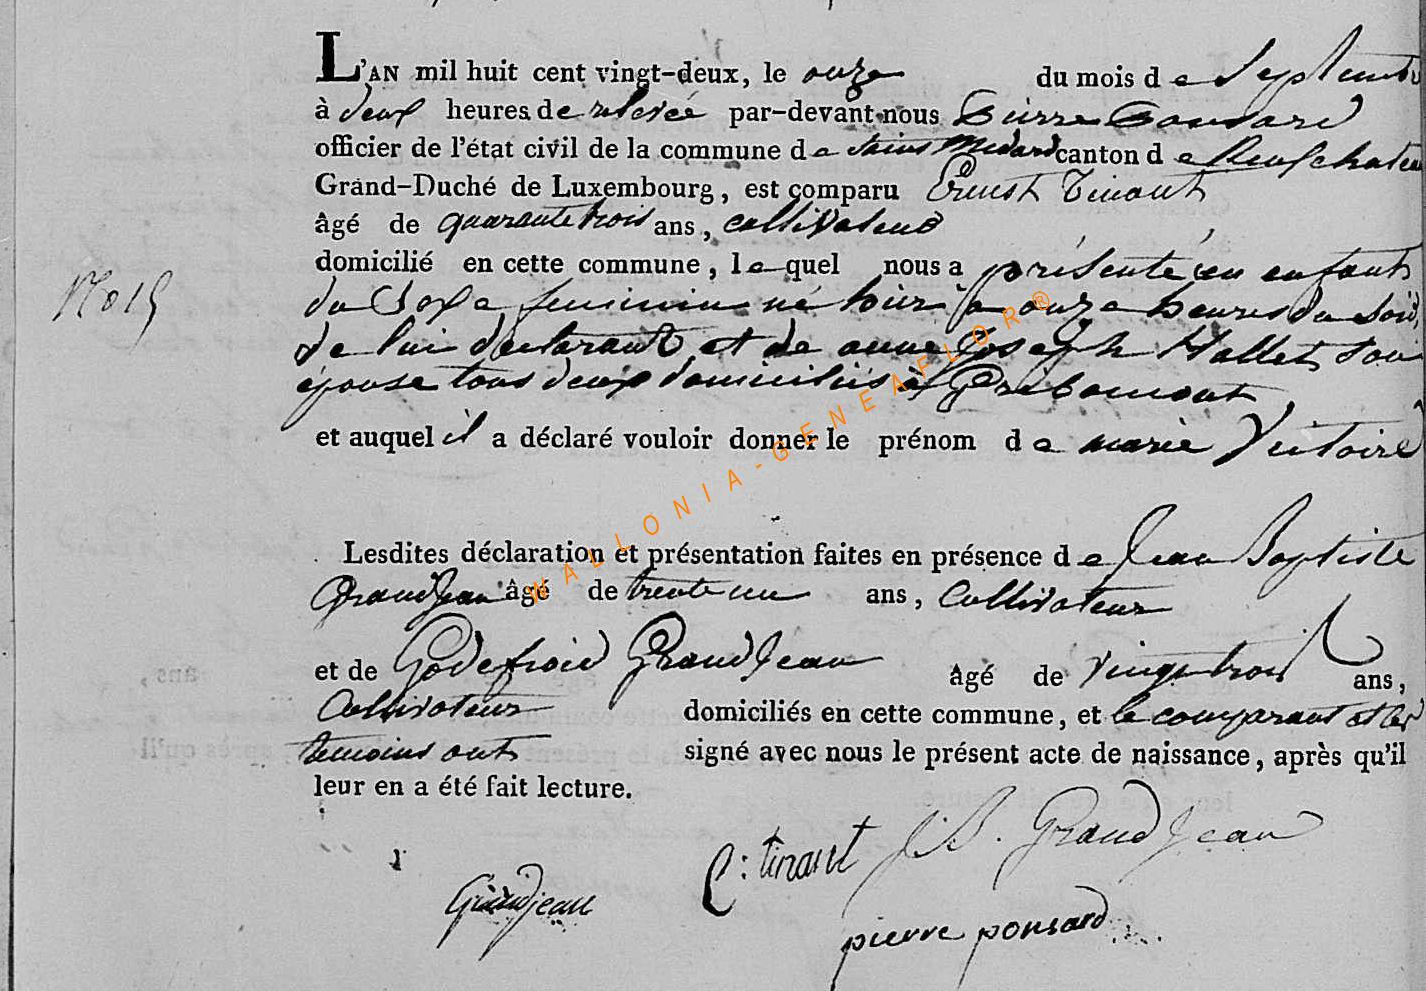 L'AN mil huit cent vingt-deux, le onze du mois de Septembre
à deux heures de relevée par-devant nous Pierre Ponsard
officier de l'état civil de la commune de Saint Medard canton de Neufchateau
Grand-Duché de Luxembourg, est comparu Ernest Tinant
âgé de quarante trois ans, cultivateur
domicilié en cette commune, lequel nous a présenté un enfant
No 15
du Sexe feminin né hier à onze heures du Soir
de lui declarant et de anne Joseph Hallet Son
épouse tous deux domiciliés à Gribomont
et auquel il a déclaré vouloir donner le prénom de marie Victoire
Lesdites déclaration et présentation faites en présence de Jean Baptiste
GrandJean âgé de trente un ans, Cultivateur
et de Godefroid GrandJean âgé de vingt trois ans,
Cultivateur domiciliés en cette commune, et le comparant et les
temoins ont signé avec nous le présent acte de naissance, après qu'il
leur en a été fait lecture.
E: tinant J.B. GrandJean
Grandjean
pierre ponsard
WALLONIA-GENEAFLOR®